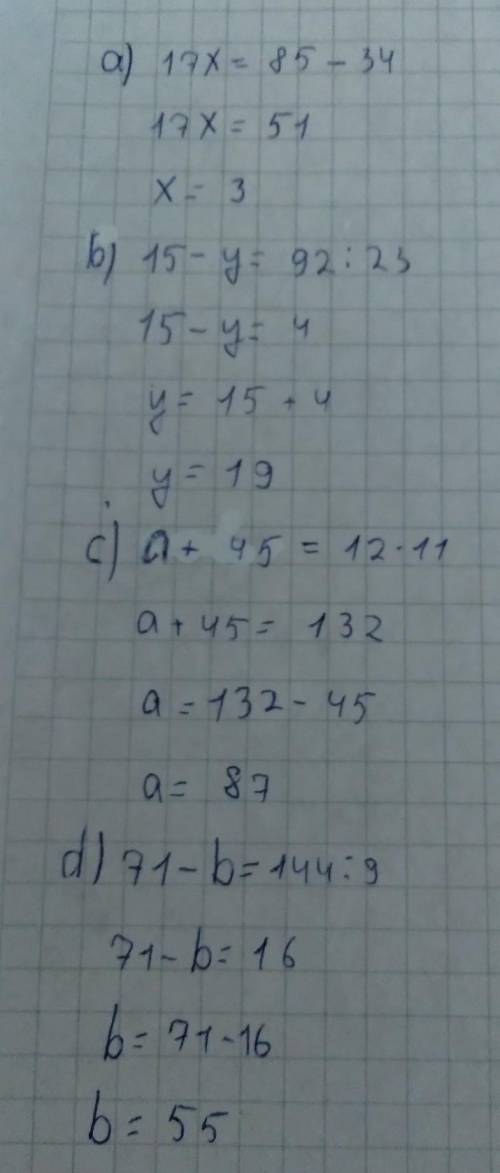 a) 17x = 85 - 34
17x = 51
x = 3
b) 15 - y = 92 : 23
15 - y = 4
y = 15 + 4
y = 19
c) a + 45 = 12 · 11
a + 45 = 132
a = 132 - 45
a = 87
d) 71 - b = 144 : 9
71 - b = 16
b = 71 - 16
b = 55